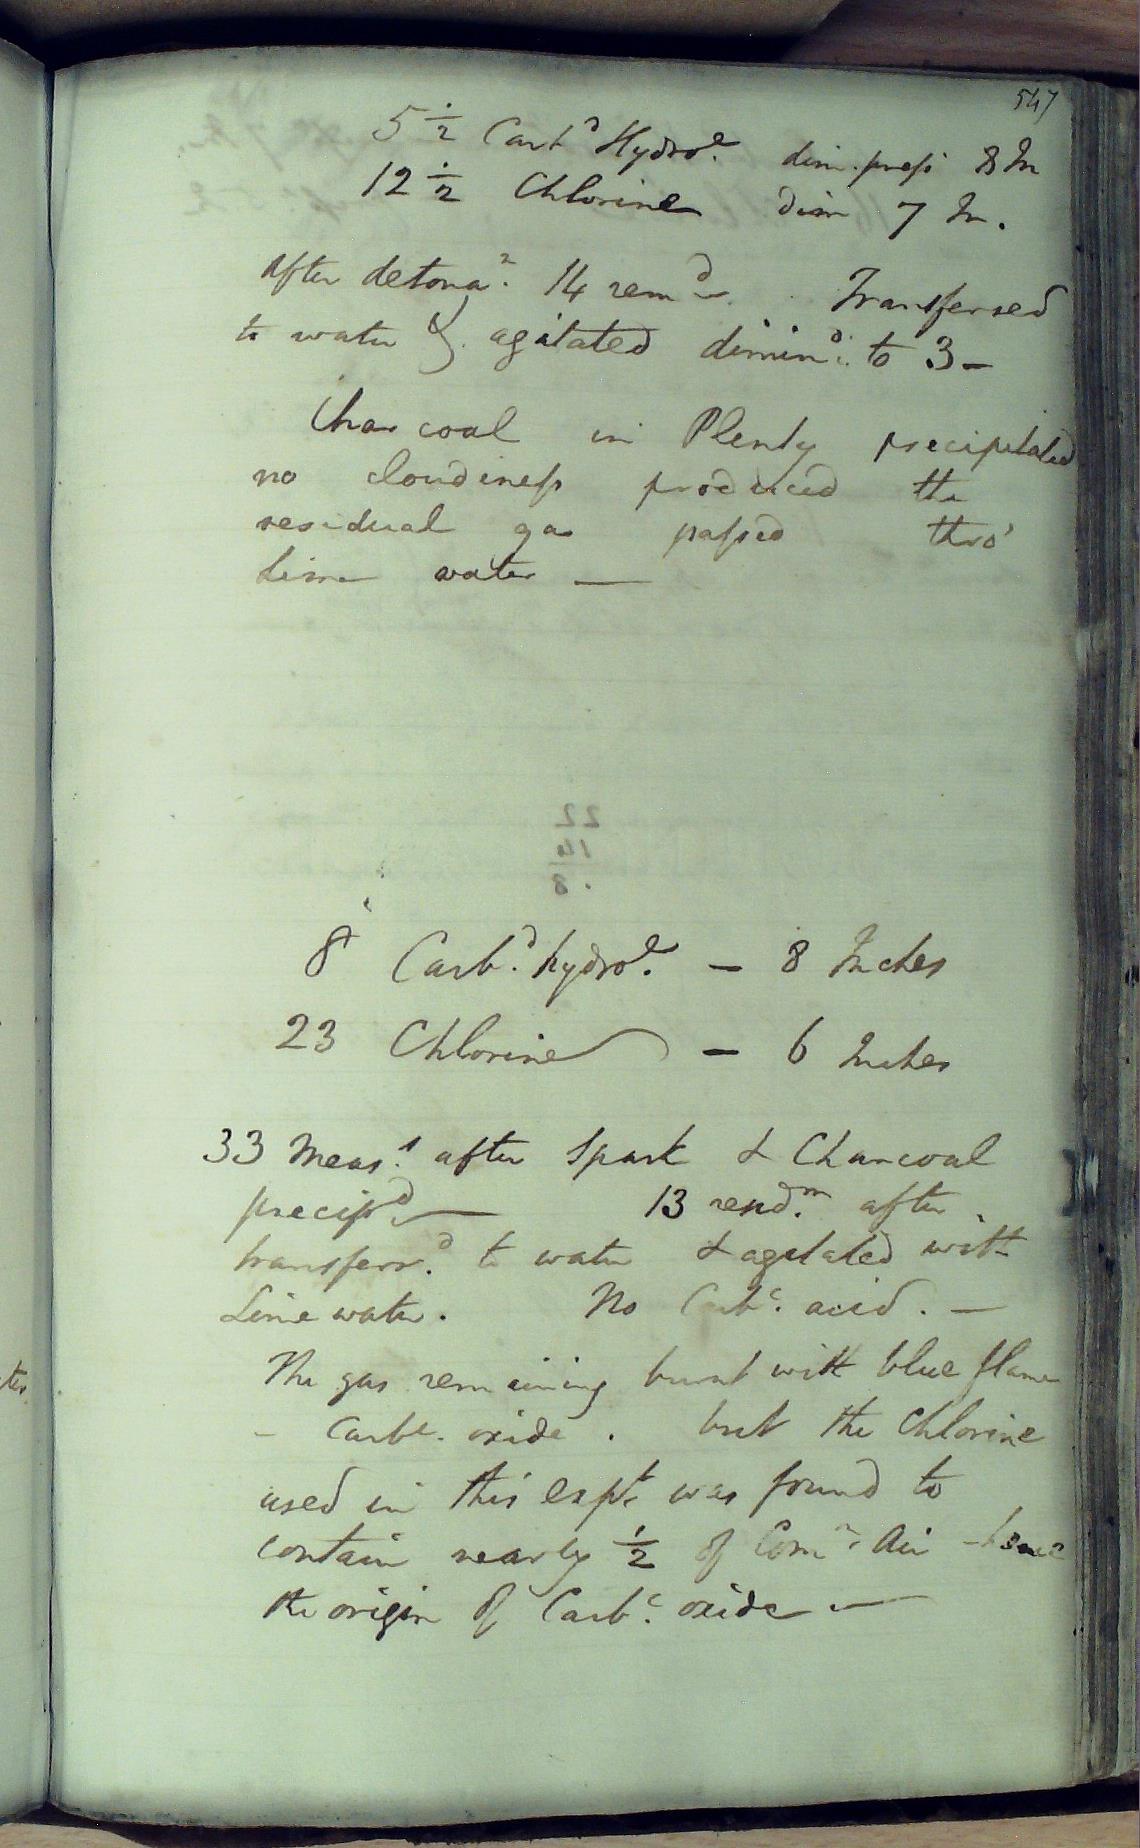 547
5 1/2 Carbd Hydroe. dim. press 8 In
12 1/2 Chlorine dim 7 In.
after detonan. 14 remd. Transferred
to water & agitated dimind. to 3 –
Charcoal in Plenty precipitated
no cloudiness produced the
residual gas passed thro'
Lime water —
22
14
8
8 Carbd. hydroe. – 8 Inches
23 Chlorine – 6 Inches
33 Meass. after Spark & Charcoal
precipd — 13 after
transferrd. to water & agitated with
Lime water. No Carbc. acid. —
The gas remaining burnt with blue flame
– Carbc. oxide. but the Chlorine
used in this Expt. was found to
contain nearly 1/2 of Comn. Air – hence
the origin of Carbc. oxide —